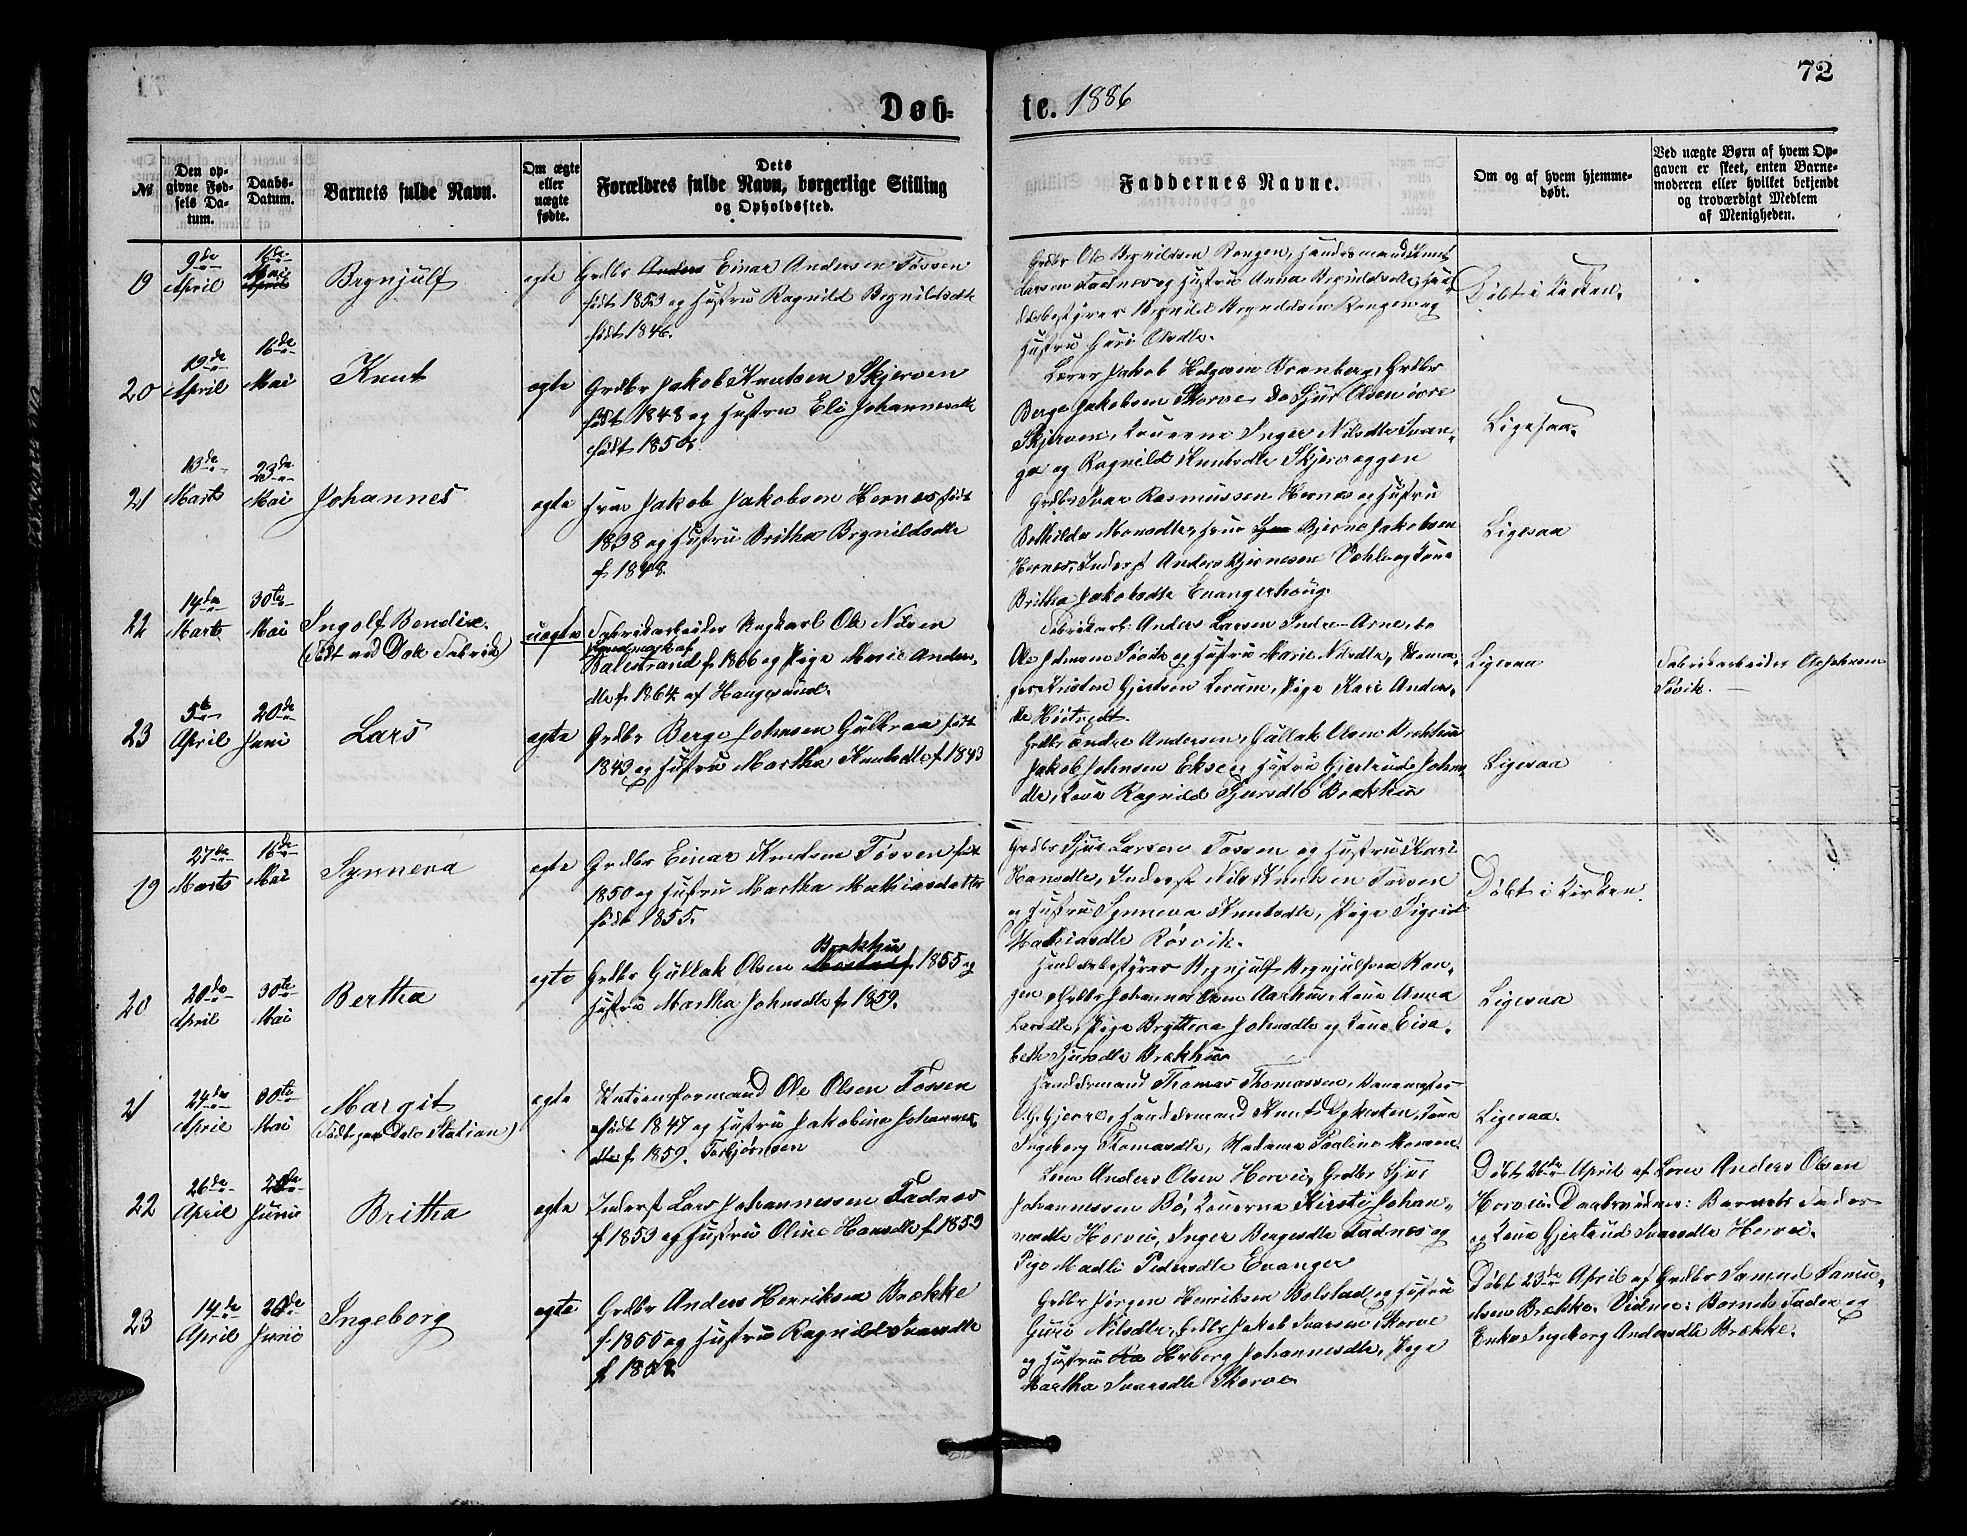 72
Døb=
te. 1886
No
Den op-
givne Fød-
sels Da-
tum.
Daabs-
Datum.
Barnets fulde Navn.
Om ægte
eller
uægte
fødte.
Dets
Forældres fulde Navn, borgerlige Stilling
og Opholdssted.
Faddernes Navne.
Om og af hvem hjemme-
døbt.
Ved uægte Børn af hvem Op-
gaven er skeet, enten Barne-
moderen eller hvilket bekjendt
og troværdigt Medlem
af Menigheden.
19
9de
April
16de
Mai
April
Brynjulf
egte
Grdbr Anders Einar Andersen Fossen
født 1853 og Hustru Ragnild Brynildsdtr
født 1846.
Grdbr Ole Brynildsen Rongen, Handelsmand Knut
Larsen Fadnes og Hustru Anna Brynildsdtr, Han-
delsbestyrer Brynild Brynildsen Rongen og
Hustru Guri Olsdtr.
Døbt i Kirken.
20
19de
April
16de
Mai
Knut
egte
Grdbr Jakob Knutsen Skjerven
født 1848 og Hustru Eli Johannesdtr
født 1850.
Lærer Jakob Helgesen Kronberg, Grdbr
Berge Jakobsen Skorve, do Sjur Olsen øvre
Skjerven, Konerne Inger Nilsdtr Svan-
ga og Ragnild Knutsdtr Skjerveggen
Ligesaa.
21
13de
Marts
23de
Mai
Johannes
egte
Jakob Jakobsen Hernes født
1838 og Hustru Britha Brynildsdtr
f. 1848.
Grdbr Ivar Rasmussen Hernes og Hustru
Bothilda Monsdtr, Bjørne Jakobsen
Hernes, Inderst Anders Bjørnesen Vahle og Kone
Britha Jakobsdtr Evangerhoug.
Ligesaa
22
14de
Marts
30te
Mai
Ingolf Bendix.
(Født ved Dale Fabrik)
uægte
Fabrikarbeider Ungkarl Ole Nilsen
Balestrand f. 1866 og Pige Marie Anders-
dtr f. 1864 af Haugesund.
Fabrikarb: Anders Larsen Indre-Arne, do
Ole Johnsen Søvik og Hustru Marie Nilsdtr,
Kristen Gjertsen Lerum, Pige Kari Anders-
dtr
Ligesaa
Fabrikarbeider Ole Johnsen
Søvik.
23
5te
April
20de
Juni
Lars
egte
Grdbr Berge Johnsen Gulbraa født
1843 og Hustru Martha Knutsdtr f. 1843
Grdbr Endre Andersen, Gullak Olsen Brækhus
Jakob Johnsen Ekse og Hustru Gjertrud Johns-
dtr, Kone Ragnild Sjursdtr Brækhus
Ligesaa
19
27de
Marts
16de
Mai
Synneva
egte
Grdbr Einar Knutsen Fossen født
1850 og Hustru Martha Mathiasdatter
født 1855.
Grdbr Sjur Larsen Fossen og Hustru Kari
Hansdtr, Inderst Nils Knutsen Fossen
og Hustru Synneva Knutsdtr, Pige Sigrid
Mathiasdtr Rørvik.
Døbt i Kirken.
20
20de
April
30te
Mai
Bertha
egte
Brækhus
Grdbr Gullak Olsen f. 1855 og
Hustru Martha Johnsdtr f. 1859.
Handelsbestyrer Brynjulf Brynjulfsen Ron-
gen, Grdbr Johannes Olsen Aarhus, Kone Anna
Larsdtr, Pige Brytteva Johnsdtr og Kone Elsa-
beth Sjursdtr Brækhus
Ligesaa
21
24de
April
30te
Mai
Margit
(Født paa Dale Station)
egte
Stationsformand Ole Olsen Fossen
født 1847 og Hustru Jakobine Johannes-
dtr f. 1859. Torbjørnsen
Handelsmand Thomas Thomassen, Banemester
O. G. Gjerre, Handelsmand Knut Dyvesten, Kone
Ingeborg Thomasdtr, Madame Pauline Monsen.
Ligesaa.
22
26de
April
20de
Juni
Britha
egte
Inderst Lars Johannessen Fadnes
f. 1853 og Hustru Oline Hansdtr f. 1859
Lens Anders Olsen Horvei, Grdbr Sjur
Johannessen Bø, Konerne Kirsti Johan-
nesdtr Horvei, Inger Bergesdtr Fadnes og
Pige Madli Pedersdtr Evanger
Døbt 26de April af Lens Anders Olsen
Horvei. Daabsvidner: Barnets Fader
og Kone Gjertrud Ivarsdtr Horvei.
23
14de
April
20de
Juni
Ingeborg
egte
Grdbr Anders Henriksen Brække
f. 1855 og Hustru Ragnild Ivarsdtr
Grdbr Jørgen Henriksen Bolstad og Hustru
Guri Nilsdtr, Grdbr Jakob Ivarsen Skorve
og Hustru Herborg Johannesdtr, Pige
Martha Ivarsdtr Skorve
Døbt 23de April af Grdbr Samuel Samu-
elsen Brække. Vidner: Barnets Fader og
Enke Ingeborg Andersdtr Brække.